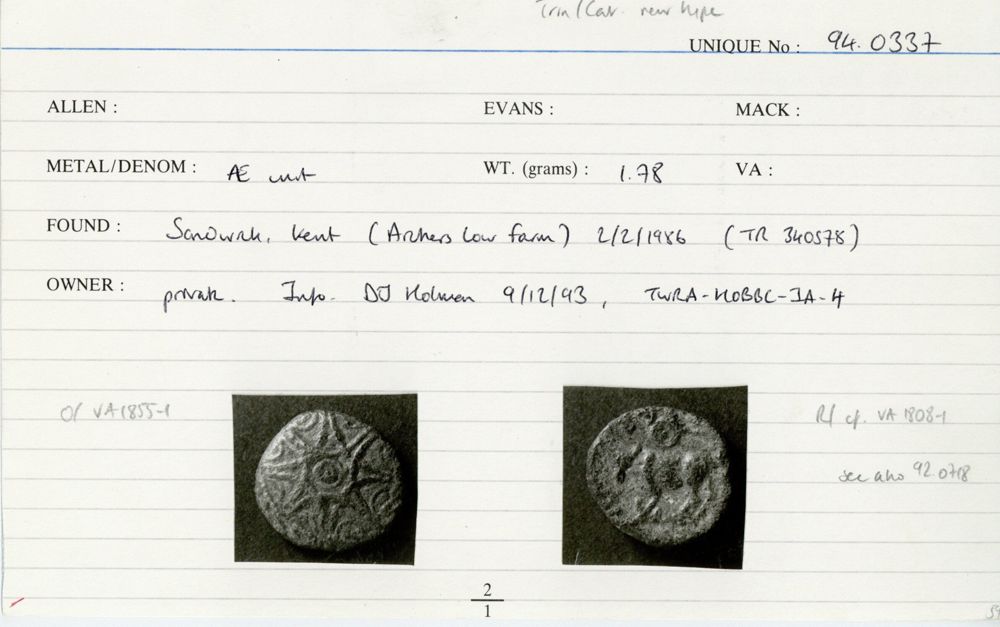 Trin/Cat. new type
UNIQUE No : 94.0337
ALLEN : EVANS : MACK :
METAL/DENOM : Æ unit WT. (grams) : 1.78 VA :
FOUND : Sandwich, Kent (Archers Low Farm) 2/2/1986 (TR 340578)
OWNER : private. Info. DJ Holman 9/12/93, TWRA-HOBBC-IA-4
O/ VA 1855-1 R/ cf. VA 1808-1
see also 92.0718
2
1